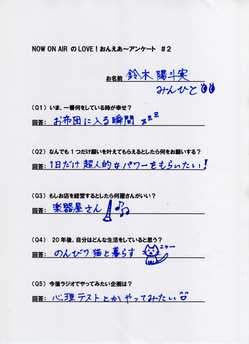 NOW ON AIR のLOVE！おんえあ～アンケート ＃２
お名前 鈴木 陽斗実
みんひと
（Q1）いま、一番何をしている時が幸せ？
回答： お布団に入る瞬間 zzz
（Q2）なんでも１つだけ願いを叶えてもらえるとしたら何をお願いする？
回答： 1日だけ超人的なパワーをもらいたい！
（Q3）もしお店を経営するとしたら何屋さんがいい？
回答： 楽器屋さん
（Q4） 20年後、自分はどんな生活をしていると思う？
回答： のんびり猫と暮らす ニャー
（Q5）今後ラジオでやってみたい企画は？
回答： 心理テストとかやってみたい